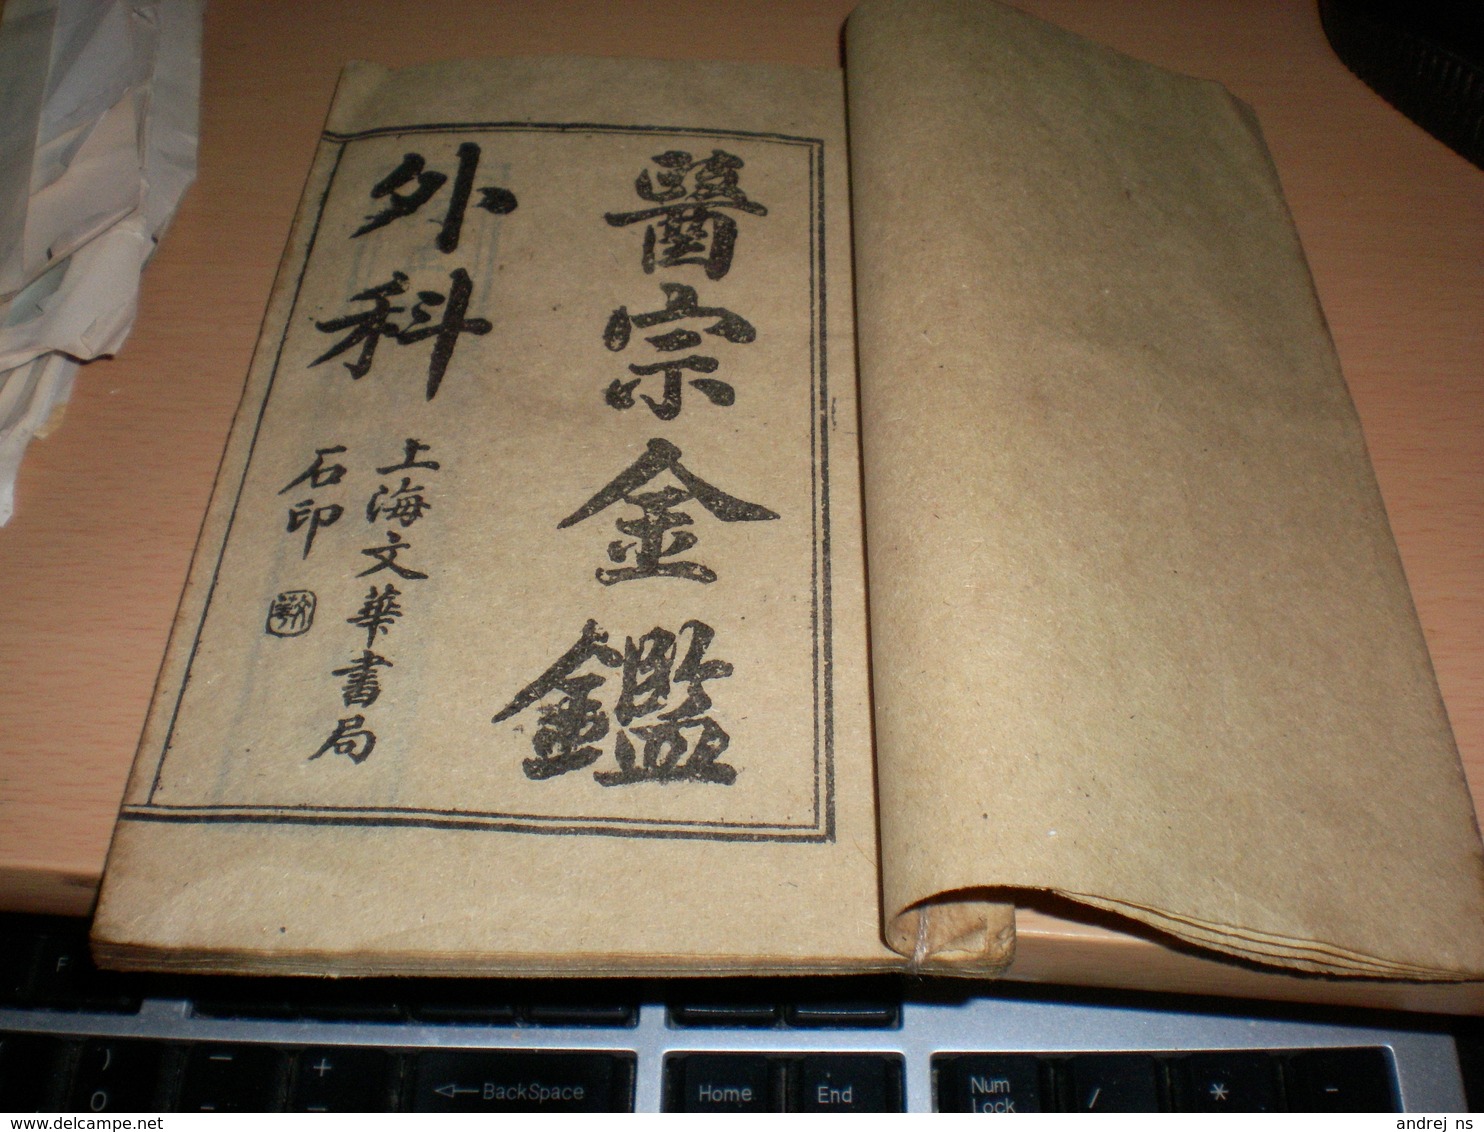 醫宗金鑑
外科
上海文華書局
石印
F
)
0
−
+
BackSpace
Home
End
Num
Lock
/
*
-
www.delcampe.net
andrej_ns